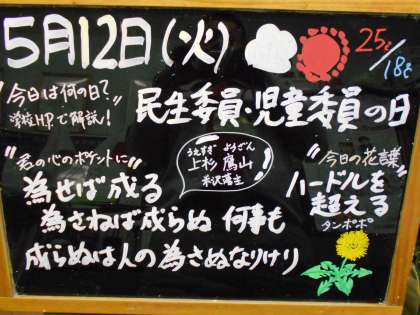 5月12日(火)
25℃/18℃
"今日は何の日?
学校HPで解説!"
民生委員・児童委員の日
"君の心のポケットに"
うえすぎ ようざん
上杉 鷹山
米沢藩主
"今日の花言葉"
ハードルを
超える
タンポポ
為せば成る
為さねば成らぬ 何事も
成らぬは人の為さぬなりけり